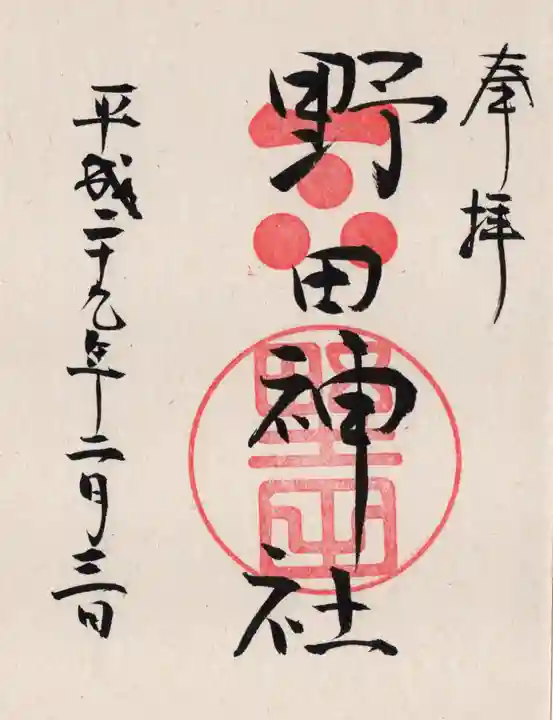 奉拝
野田神社
平成二十九年二月三日